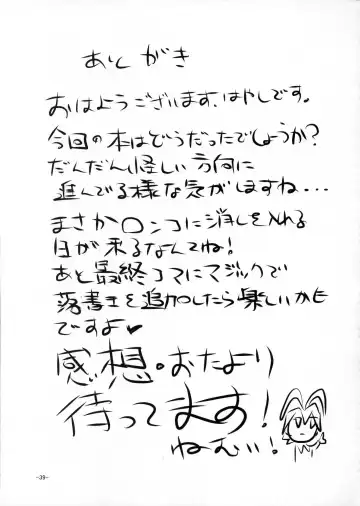 あとがき
おはようございます、はやしです。
今回の本はどうだったでしょうか?
だんだん怪しい方向に
進んでる様な気がしますね・・・
まさか〇ンコに消しを入れる
日が来るなんてね!
あと最終コマにマジックで
落書きを追加したら楽しいかも
ですよ♥
感想。おたより
待ってます!
ねむい!
-39-